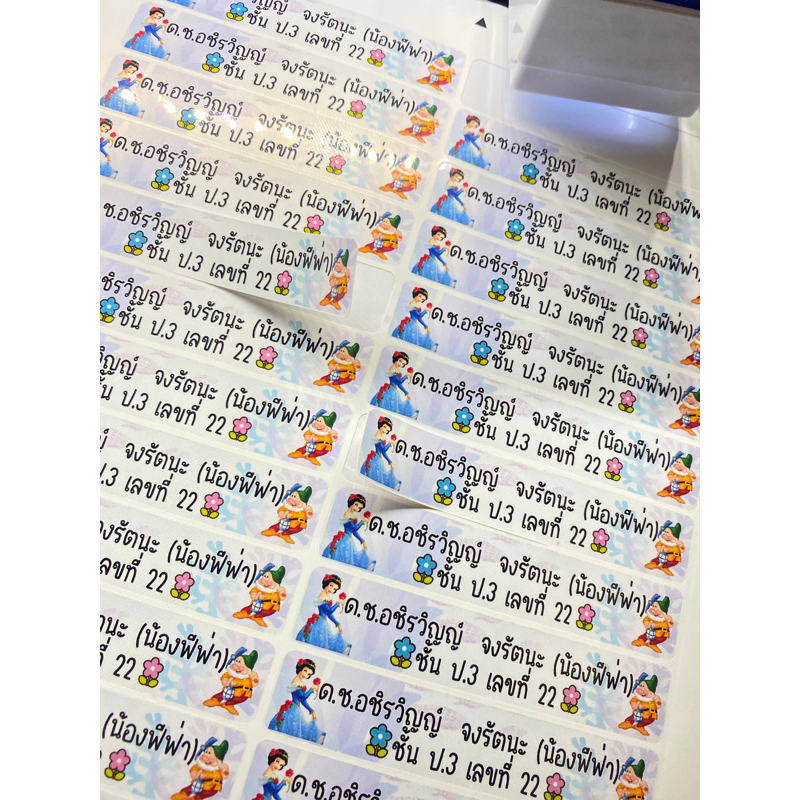 ชั้น ป.3 เลขที่ 22
ด.ช.อชิรวิญญ์ จงรัตนะ (น้องฟีฟ่า)
ชั้น ป.3 เลขที่ 22
ด.ช.อชิรวิญญ์ จงรัตนะ (น้องฟีฟ่า)
ชั้น ป.3 เลขที่ 22
ด.ช.อชิรวิญญ์ จงรัตนะ (น้องฟีฟ่า)
ชั้น ป.3 เลขที่ 22
ช.อชิรวิญญ์ จงรัตนะ (น้องฟีฟ่า)
ชั้น ป.3 เลขที่ 22
จงรัตนะ (น้องฟีฟ่า)
ชั้น ป.3 เลขที่ 22
จงรัตนะ (น้องฟีฟ่า)
ป.3 เลขที่ 22
จงรัตนะ (น้องฟีฟ่า)
เลขที่ 22
(น้องฟีฟ่า)
22
(น้องฟีฟ่า)
22
(น้องฟีฟ่า)
ด.ช.อชิรวิญญ์ จงรัตนะ
ชั้น ป.3 เลขที่ 22
ด.ช.อชิรวิญญ์ จงรัตนะ
ชั้น ป.3 เลขที่ 22
ด.ช.อชิรวิญญ์ จงรัตนะ (น้องฟีฟ่า)
ชั้น ป.3 เลขที่ 22
ด.ช.อชิรวิญญ์ จงรัตนะ (น้องฟีฟ่า)
ชั้น ป.3 เลขที่ 22
ด.ช.อชิรวิญญ์ จงรัตนะ (น้องฟีฟ่า)
ชั้น ป.3 เลขที่ 22
ด.ช.อชิรวิญญ์ จงรัตนะ (น้องฟีฟ่า)
ชั้น ป.3 เลขที่ 22
ด.ช.อชิรวิญญ์ จงรัตนะ (น้องฟีฟ่า)
ชั้น ป.3 เลขที่ 22
ด.ช.อชิรวิญญ์ จงรัตนะ (น้องฟีฟ่า)
ชั้น ป.3 เลขที่ 22
ด.ช.อชิรวิญญ์ จงรัตนะ (น้องฟีฟ่า)
ชั้น ป.3 เลขที่ 22